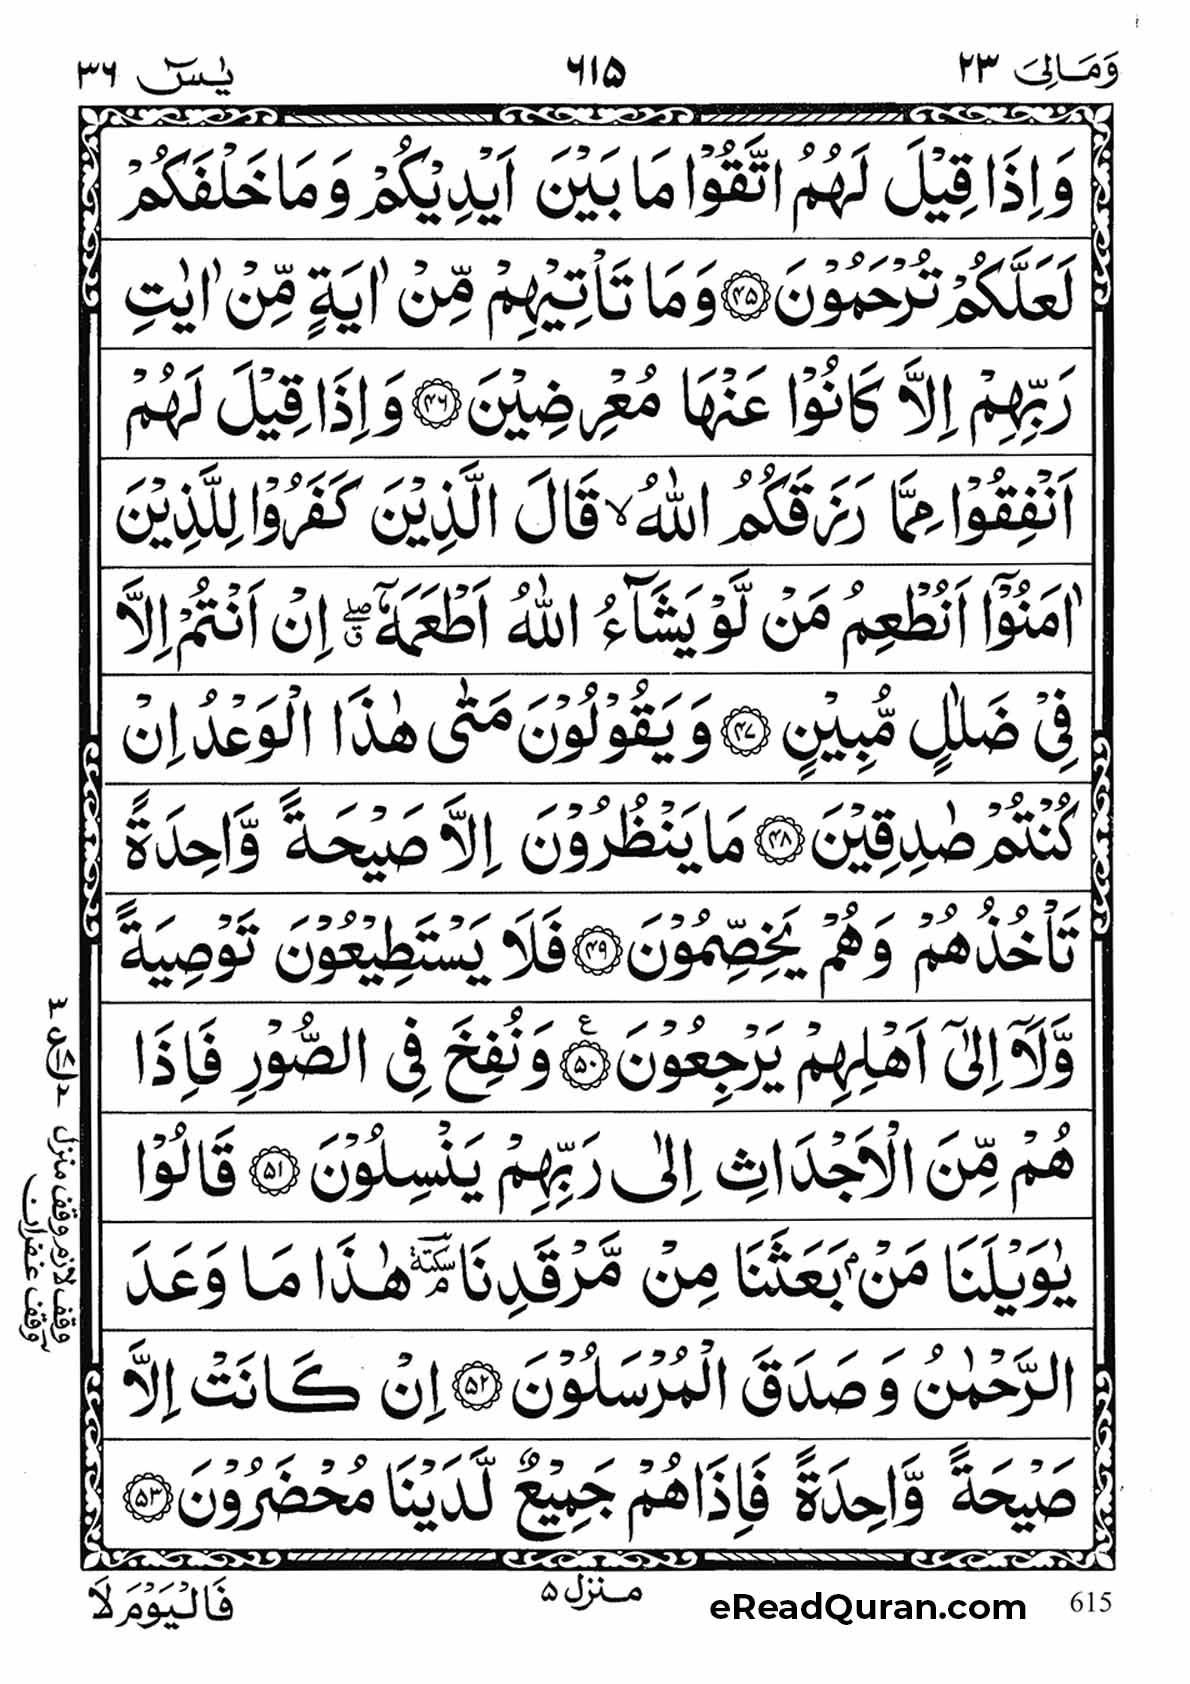 وَمَالِیَ ٢٣ ٦١٥ یٰسٓ ٣٦
وَاِذَا قِيْلَ لَهُمُ اتَّقُوْا مَا بَيْنَ اَيْدِيْكُمْ وَمَا خَلْفَكُمْ
لَعَلَّكُمْ تُرْحَمُوْنَ ۝٤٥ وَمَا تَاْتِيْهِمْ مِّنْ اٰيَةٍ مِّنْ اٰيٰتِ
رَبِّهِمْ اِلَّا كَانُوْا عَنْهَا مُعْرِضِيْنَ ۝٤٦ وَاِذَا قِيْلَ لَهُمْ
اَنْفِقُوْا مِمَّا رَزَقَكُمُ اللّٰهُ ۙ قَالَ الَّذِيْنَ كَفَرُوْا لِلَّذِيْنَ
اٰمَنُوْٓا اَنُطْعِمُ مَنْ لَّوْ يَشَآءُ اللّٰهُ اَطْعَمَهٗٓ ۖ ق اِنْ اَنْتُمْ اِلَّا
فِيْ ضَلٰلٍ مُّبِيْنٍ ۝٤٧ وَيَقُوْلُوْنَ مَتٰى هٰذَا الْوَعْدُ اِنْ
كُنْتُمْ صٰدِقِيْنَ ۝٤٨ مَا يَنْظُرُوْنَ اِلَّا صَيْحَةً وَّاحِدَةً
تَاْخُذُهُمْ وَهُمْ يَخِصِّمُوْنَ ۝٤٩ فَلَا يَسْتَطِيْعُوْنَ تَوْصِيَةً
وَّلَآ اِلٰٓى اَهْلِهِمْ يَرْجِعُوْنَ ۝٥٠ ع وَنُفِخَ فِى الصُّوْرِ فَاِذَا
هُمْ مِّنَ الْاَجْدَاثِ اِلٰى رَبِّهِمْ يَنْسِلُوْنَ ۝٥١ قَالُوْا
يٰوَيْلَنَا مَنْۢ بَعَثَنَا مِنْ مَّرْقَدِنَا سكتة م هٰذَا مَا وَعَدَ
الرَّحْمٰنُ وَصَدَقَ الْمُرْسَلُوْنَ ۝٥٢ اِنْ كَانَتْ اِلَّا
صَيْحَةً وَّاحِدَةً فَاِذَاهُمْ جَمِيْعٌ لَّدَيْنَا مُحْضَرُوْنَ ۝٥٣
وقف لازم وقف منزل
وقف غفران
فَالْيَوْمَ لَا منزل ۵ eReadQuran.com 615